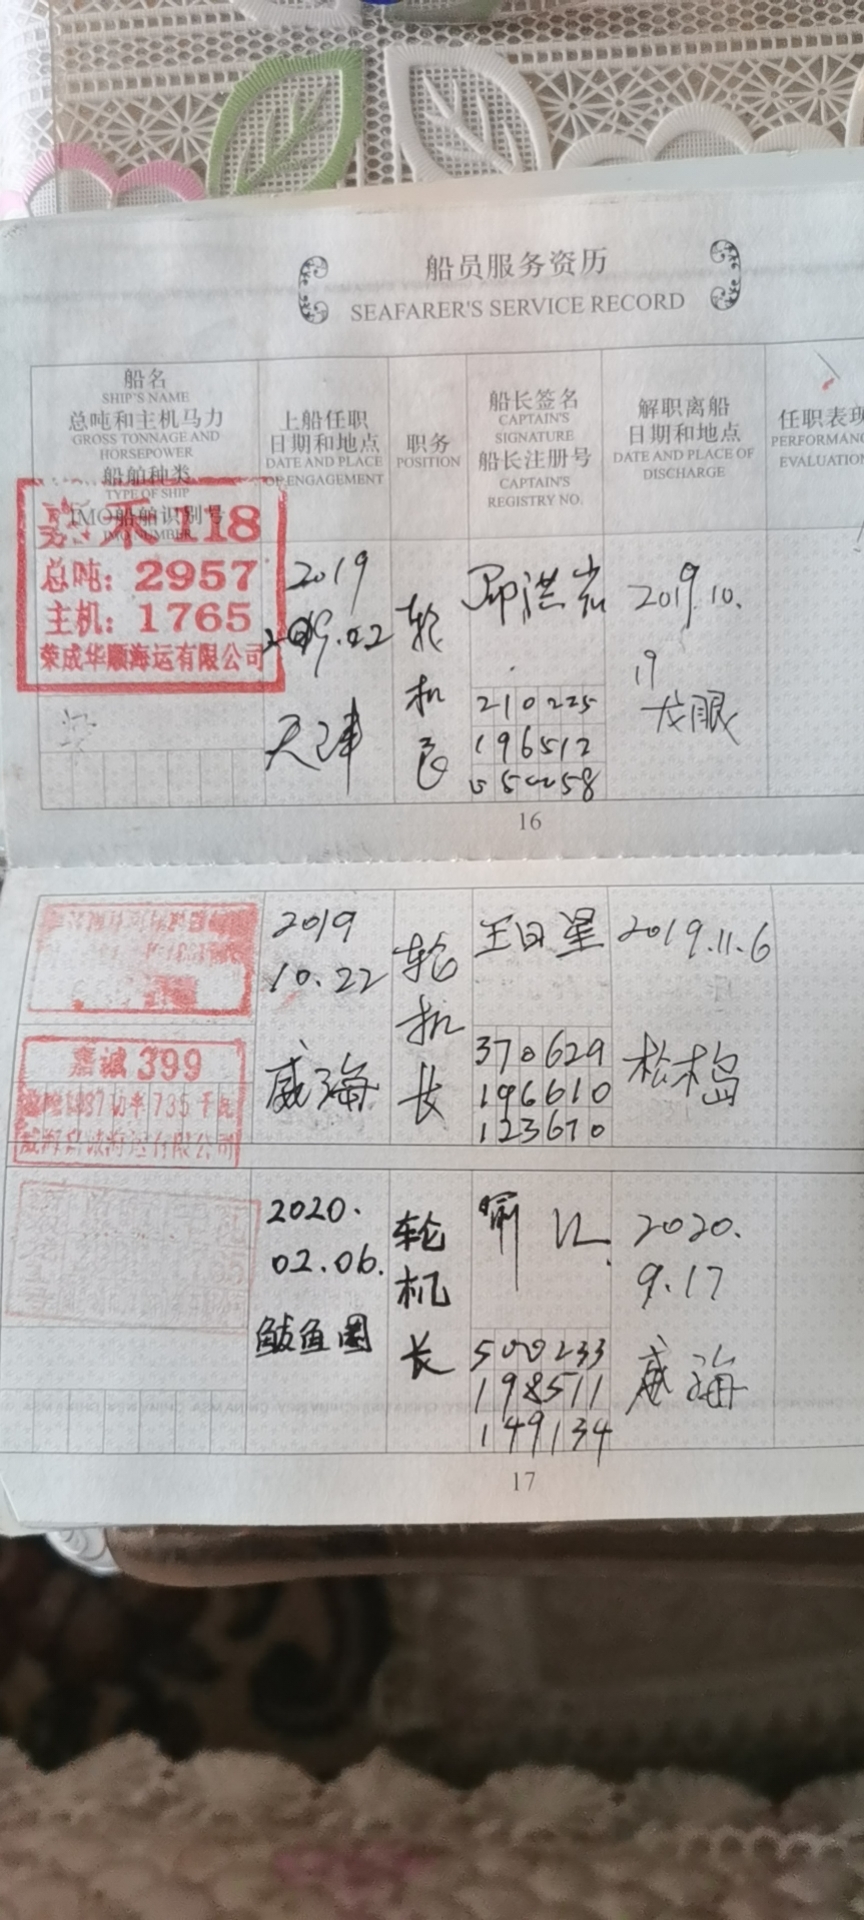 船员服务资历
SEAFARER'S SERVICE RECORD
船名
SHIP'S NAME
总吨和主机马力
GROSS TONNAGE AND
HORSEPOWER
船舶种类
TYPE OF SHIP
IMO船舶识别号
IMO NUMBER
上船任职
日期和地点
DATE AND PLACE
OF ENGAGEMENT
职务
POSITION
船长签名
CAPTAIN'S
SIGNATURE
船长注册号
CAPTAIN'S
REGISTRY NO.
解职离船
日期和地点
DATE AND PLACE OF
DISCHARGE
任职表现
PERFORMANC
EVALUATION
禾118
总吨：2957
主机：1765
荣成华顺海运有限公司
2019
.22
天津
轮
机
长
洪岩
210225
196512
2019.10.
19
龙眼
16
嘉诚399
735千瓦
2019
10.22
威海
轮
机
长
王日星
370629
196610
123670
2019.11.6
松木岛
2020.
02.06.
鲅鱼圈
轮
机
长
500233
198511
149134
2020.
9.17
威海
17